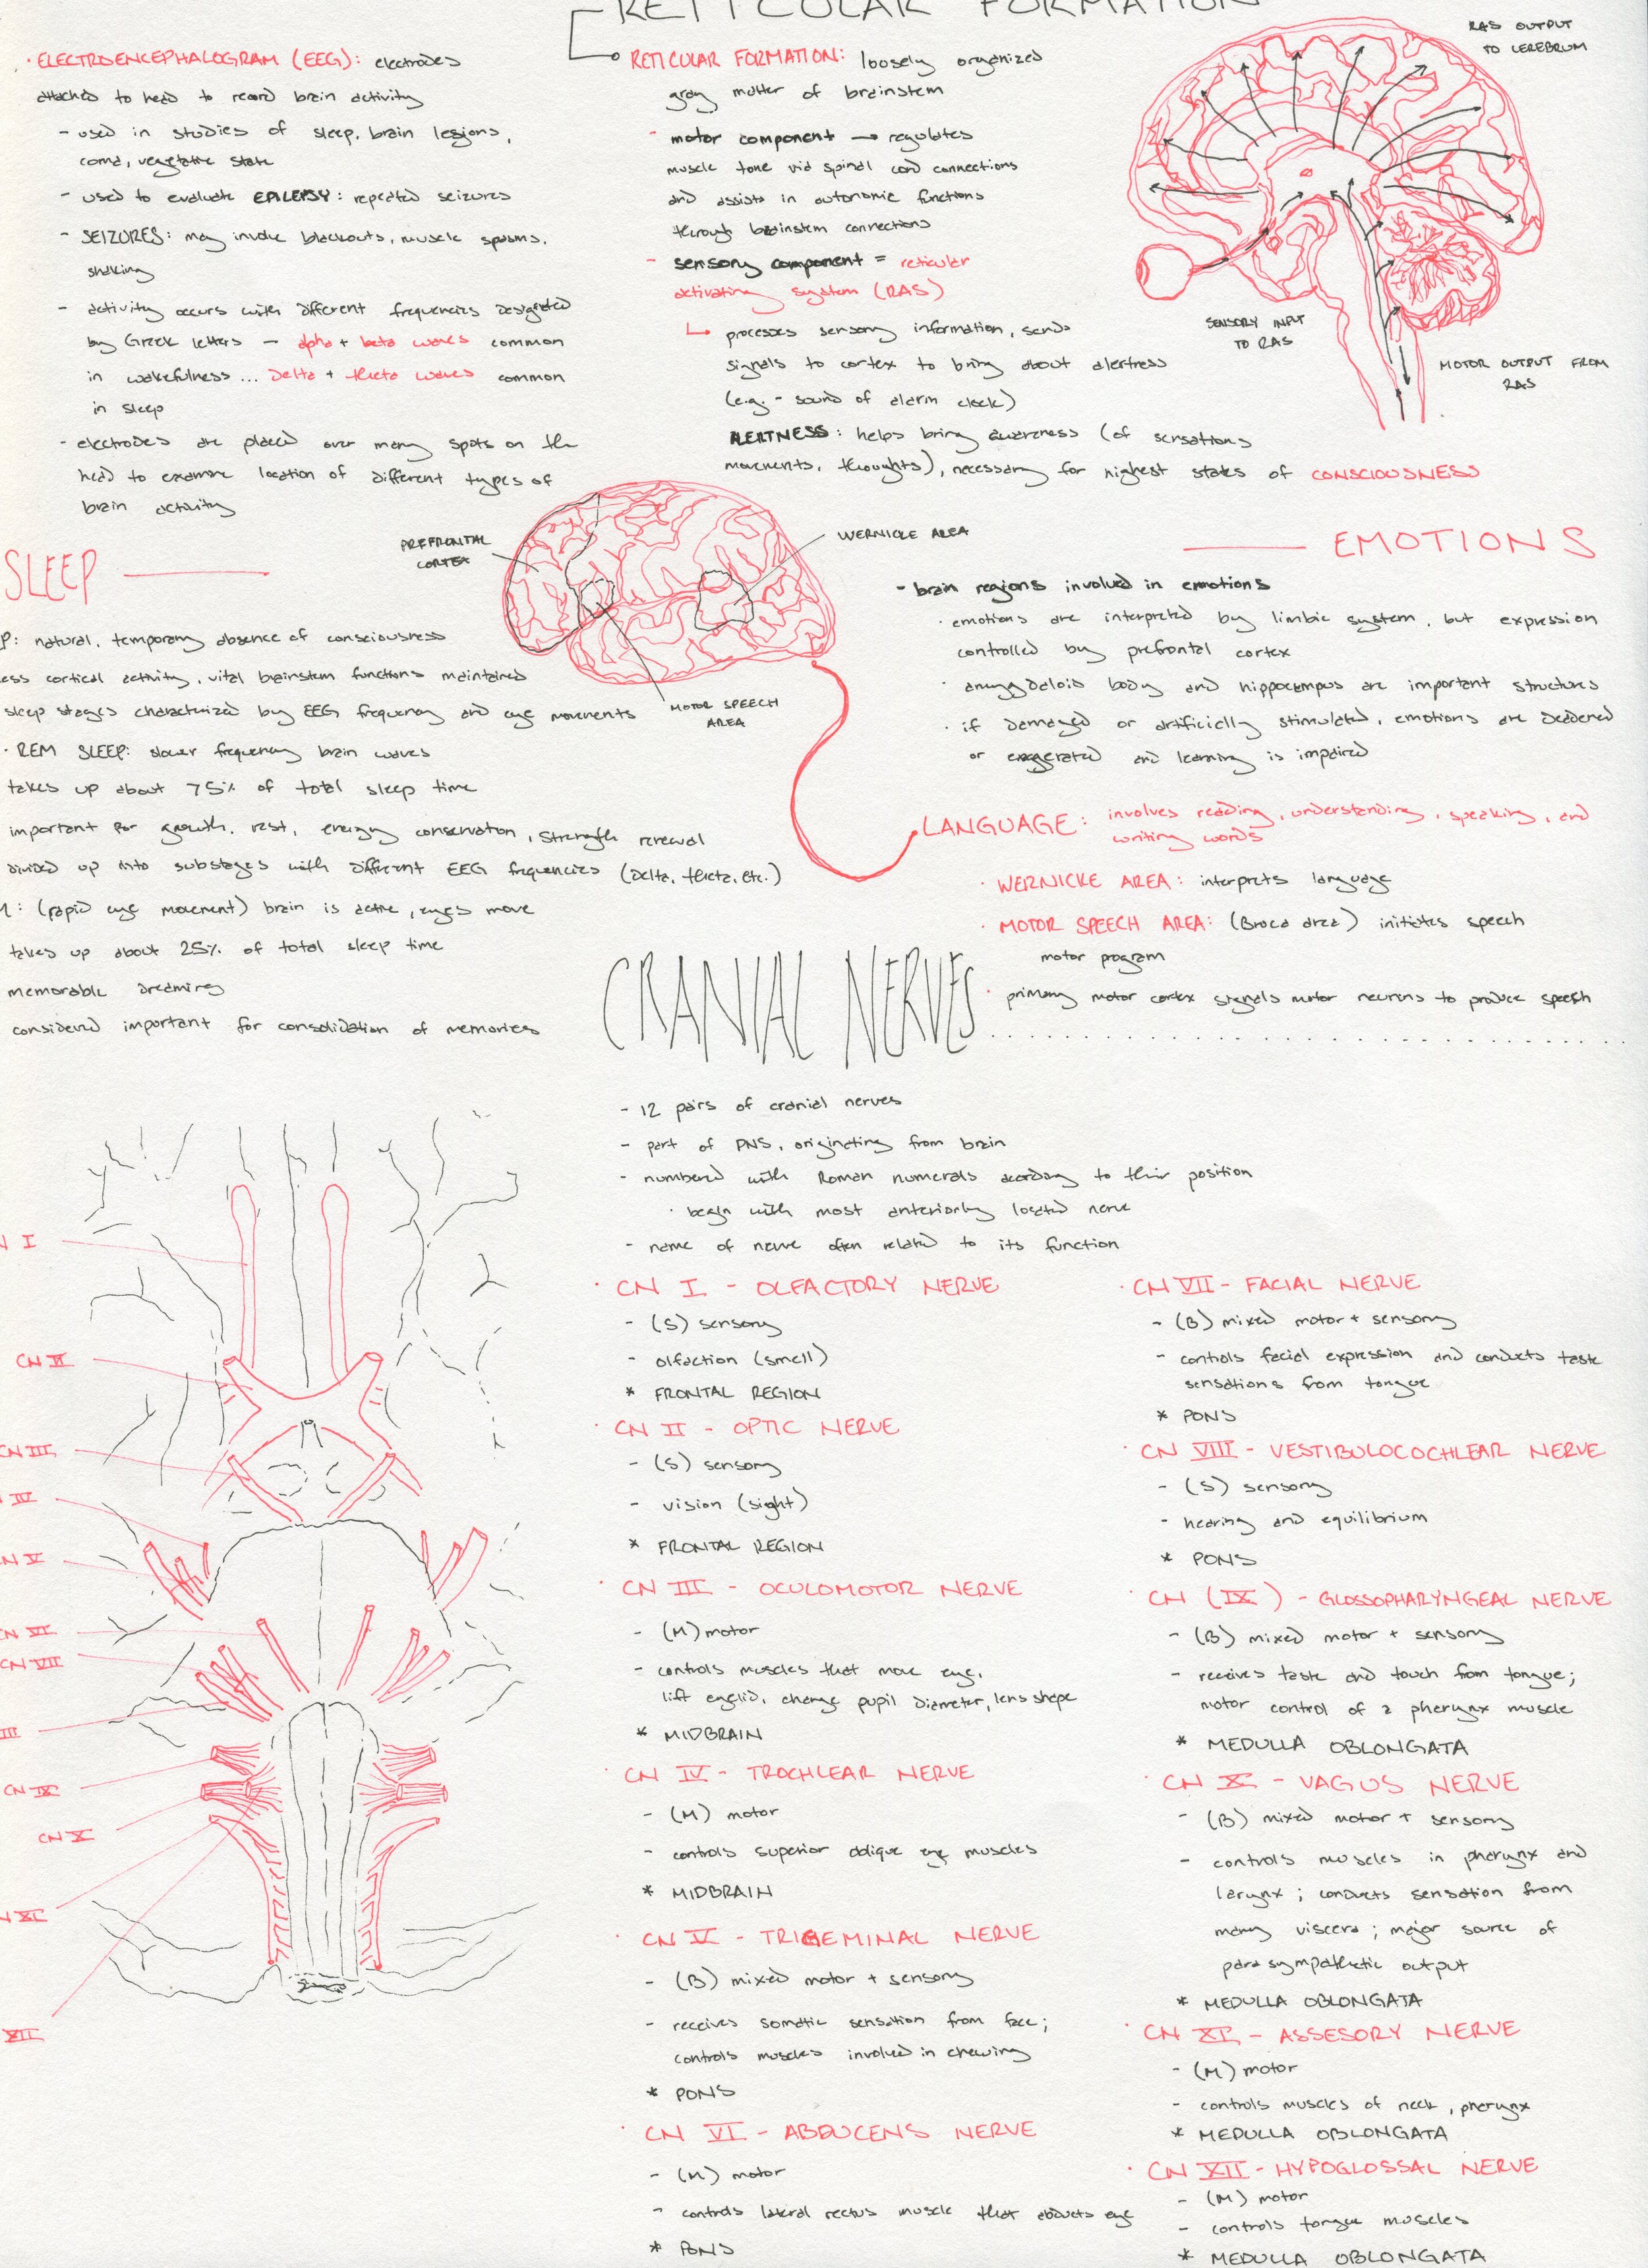 RETICULAR FORMATION
· ELECTROENCEPHALOGRAM (EEG): electrodes
attached to head to record brain activity
- used in studies of sleep, brain lesions,
coma, vegetative state
- used to evaluate EPILEPSY: repeated seizures
- SEIZURES: may involve blackouts, muscle spasms,
shaking
- activity occurs with different frequencies designated
by Greek letters - alpha + beta waves common
in wakefulness ... Delta + theta waves common
in sleep
- electrodes are placed over many spots on the
head to examine location of different types of
brain activity
RETICULAR FORMATION: loosely organized
gray matter of brainstem
- motor component → regulates
muscle tone via spinal cord connections
and assists in autonomic functions
through brainstem connections
- sensory component = reticular
activating system (RAS)
↳ processes sensory information, sends
signals to cortex to bring about alertness
(e.g. - sound of alarm clock)
ALERTNESS: helps bring awareness (of sensations
movements, thoughts), necessary for highest states of CONSCIOUSNESS
RAS OUTPUT
TO CEREBRUM
SENSORY INPUT
TO RAS
MOTOR OUTPUT FROM
RAS
SLEEP
P: natural, temporary absence of consciousness
ess cortical activity, vital brainstem functions maintained
sleep stages characterized by EEG frequency and eye movements
· REM SLEEP: slower frequency brain waves
takes up about 75% of total sleep time
important for growth, rest, energy conservation, strength renewal
divided up into substages with different EEG frequencies (Delta, theta, etc.)
M: (rapid eye movement) brain is active, eyes move
takes up about 25% of total sleep time
memorable dreaming
considered important for consolidation of memories
PREFRONTAL
CORTEX
WERNICLE AREA
MOTOR SPEECH
AREA
EMOTIONS
- brain regions involved in emotions
· emotions are interpreted by limbic system, but expression
controlled by prefrontal cortex
· amygdaloid body and hippocampus are important structures
· if damaged or artificially stimulated, emotions are deadened
or exaggerated and learning is impaired
LANGUAGE: involves reading, understanding, speaking, and
writing words
· WERNICKE AREA: interprets language
· MOTOR SPEECH AREA: (Broca area) initiates speech
motor program
· primary motor cortex signals motor neurons to produce speech
CRANIAL NERVES
- 12 pairs of cranial nerves
- part of PNS, originating from brain
- numbered with Roman numerals according to their position
· begin with most anteriorly located nerve
- name of nerve often related to its function
· CN I - OLFACTORY NERVE
- (S) sensory
- olfaction (smell)
* FRONTAL REGION
· CN II - OPTIC NERVE
- (S) sensory
- vision (sight)
* FRONTAL REGION
· CN III - OCULOMOTOR NERVE
- (M) motor
- controls muscles that move eye,
lift eyelid, change pupil diameter, lens shape
* MIDBRAIN
· CN IV - TROCHLEAR NERVE
- (M) motor
- controls superior oblique eye muscles
* MIDBRAIN
· CN V - TRIGEMINAL NERVE
- (B) mixed motor + sensory
- receives somatic sensation from face;
controls muscles involved in chewing
* PONS
· CN VI - ABDUCENS NERVE
- (M) motor
- controls lateral rectus muscle that abducts eye
* PONS
· CN VII - FACIAL NERVE
- (B) mixed motor + sensory
- controls facial expression and conducts taste
sensations from tongue
* PONS
· CN VIII - VESTIBULOCOCHLEAR NERVE
- (S) sensory
- hearing and equilibrium
* PONS
CN (IX) - GLOSSOPHARYNGEAL NERVE
- (B) mixed motor + sensory
- receives taste and touch from tongue;
motor control of a pharynx muscle
* MEDULLA OBLONGATA
· CN X - VAGUS NERVE
- (B) mixed motor + sensory
- controls muscles in pharynx and
larynx; conducts sensation from
many viscera; major source of
parasympathetic output
* MEDULLA OBLONGATA
· CN XI - ASSESORY NERVE
- (M) motor
- controls muscles of neck, pharynx
* MEDULLA OBLONGATA
· CN XII - HYPOGLOSSAL NERVE
- (M) motor
- controls tongue muscles
* MEDULLA OBLONGATA
N I
CN II
CN III
IV
N V
CN VI
CN VII
III
CN IX
CN X
XI
XII